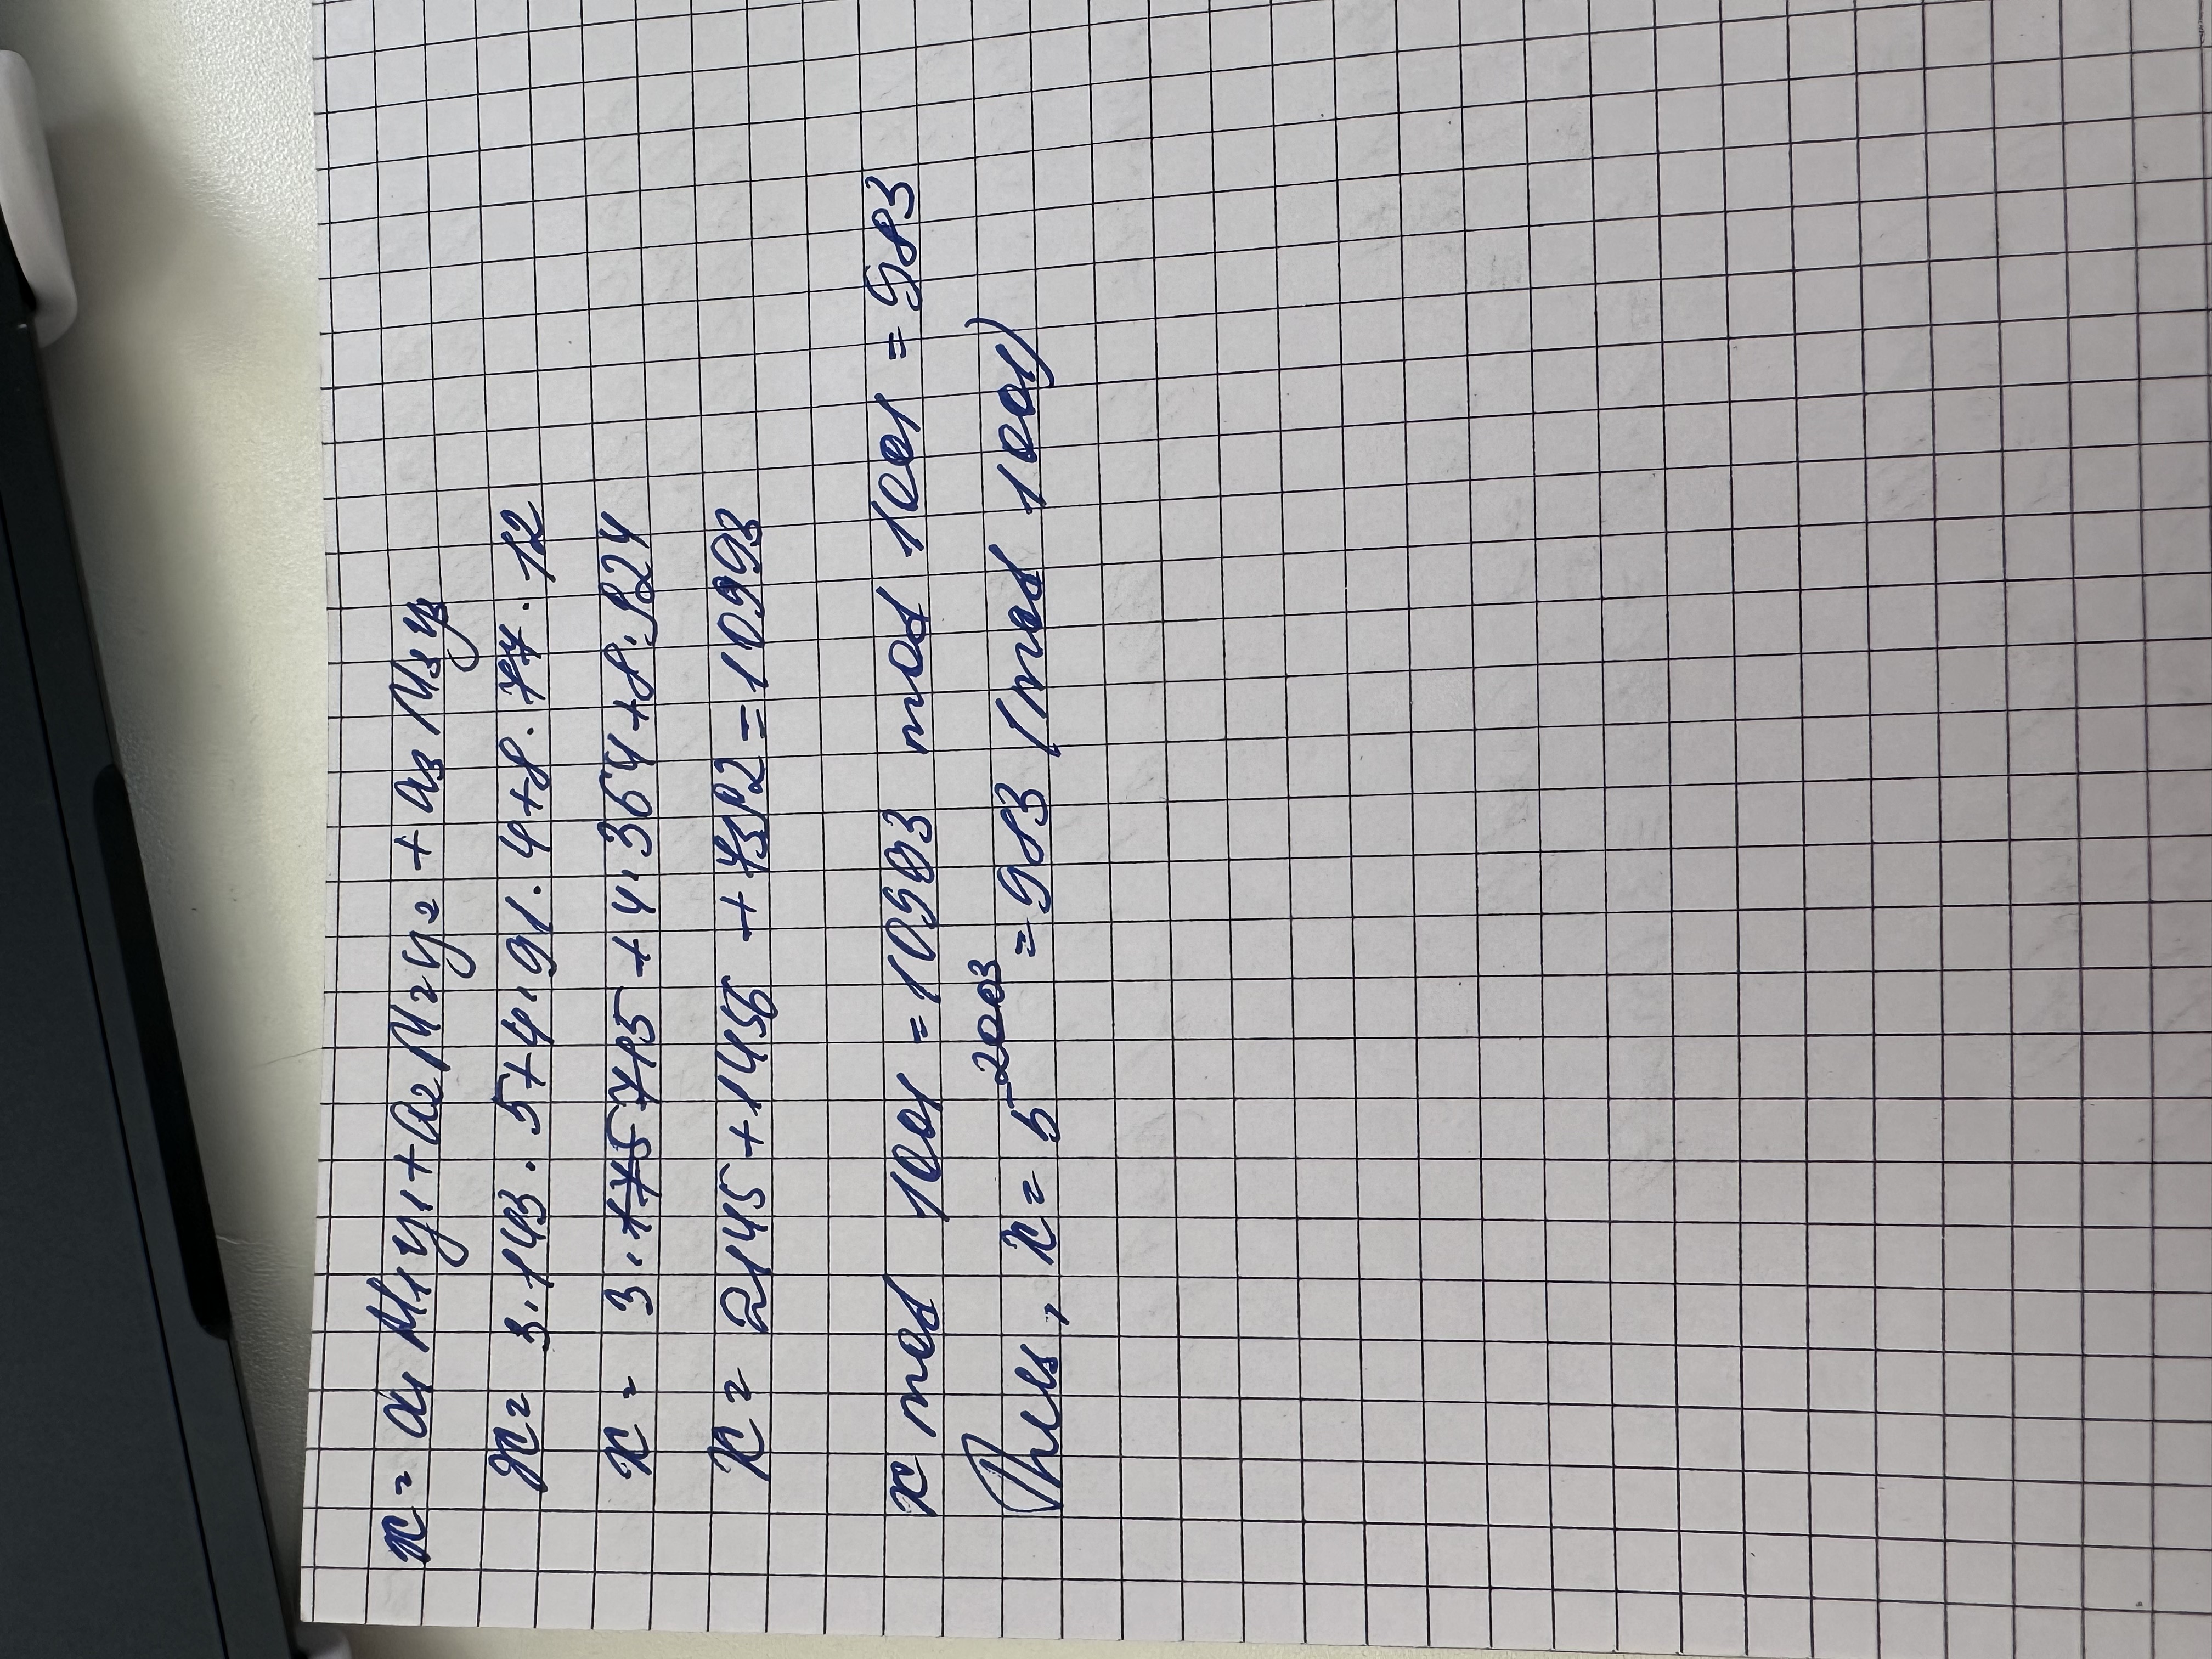 x = a₁ M₁y₁ + a₂ M₂y₂ + a₃ M₃y₃
x = 3·143·5+4·91·4+8·77·12
x = 3·175 715 + 4·364+8·924
x = 2145+1456 + 7392 = 10993
x mod 1001 = 10993 mod 1001 = 983
Thus, x = 5²⁰⁰³ = 983 (mod 1001)